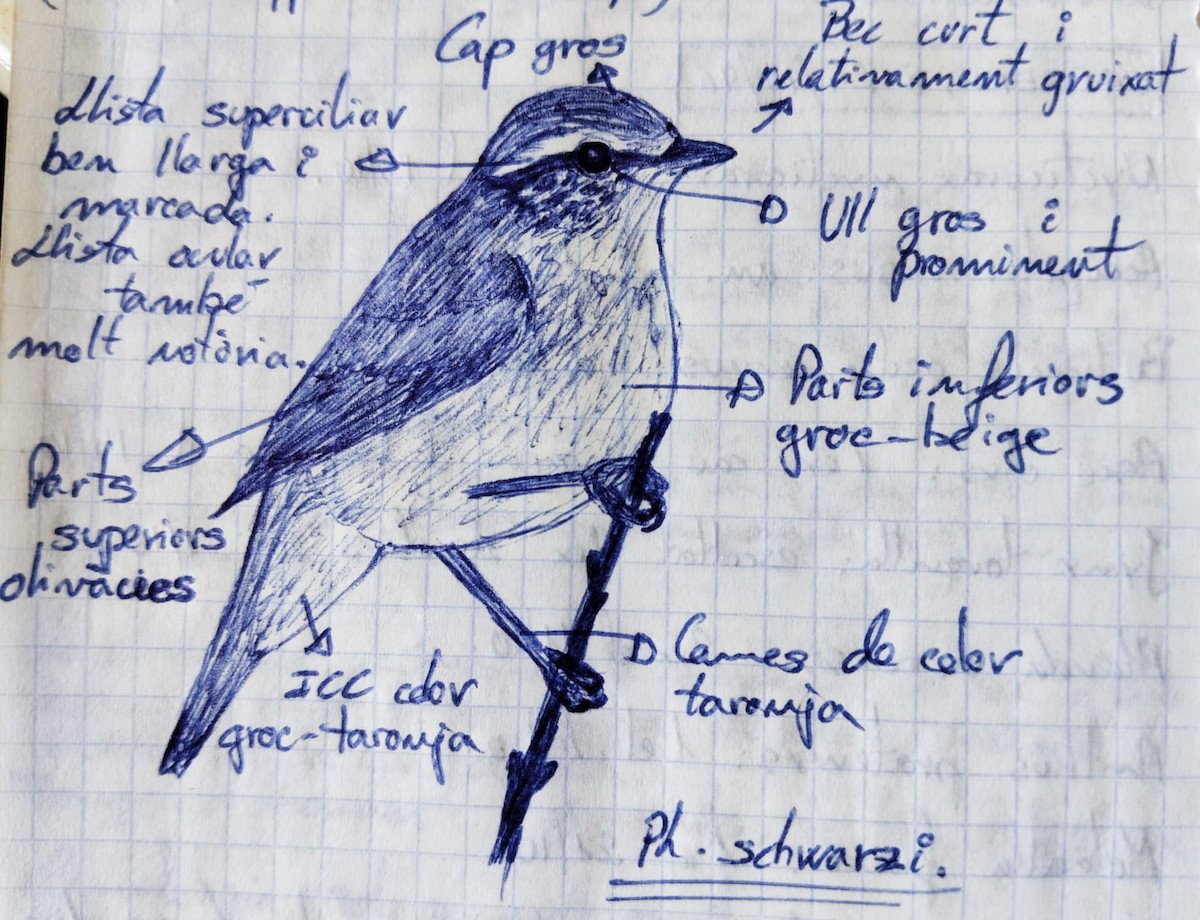 Cap gros
Bec curt i
relativament gruixat
Llista superciliar
ben llarga i
marcada.
Llista ocular
també
molt notòria.
Ull gros i
prominent
Parts inferiors
groc-beige
Parts
superiors
olivàcies
ICC color
groc-taronja
Cames de color
taronja
Ph. schwarzi.